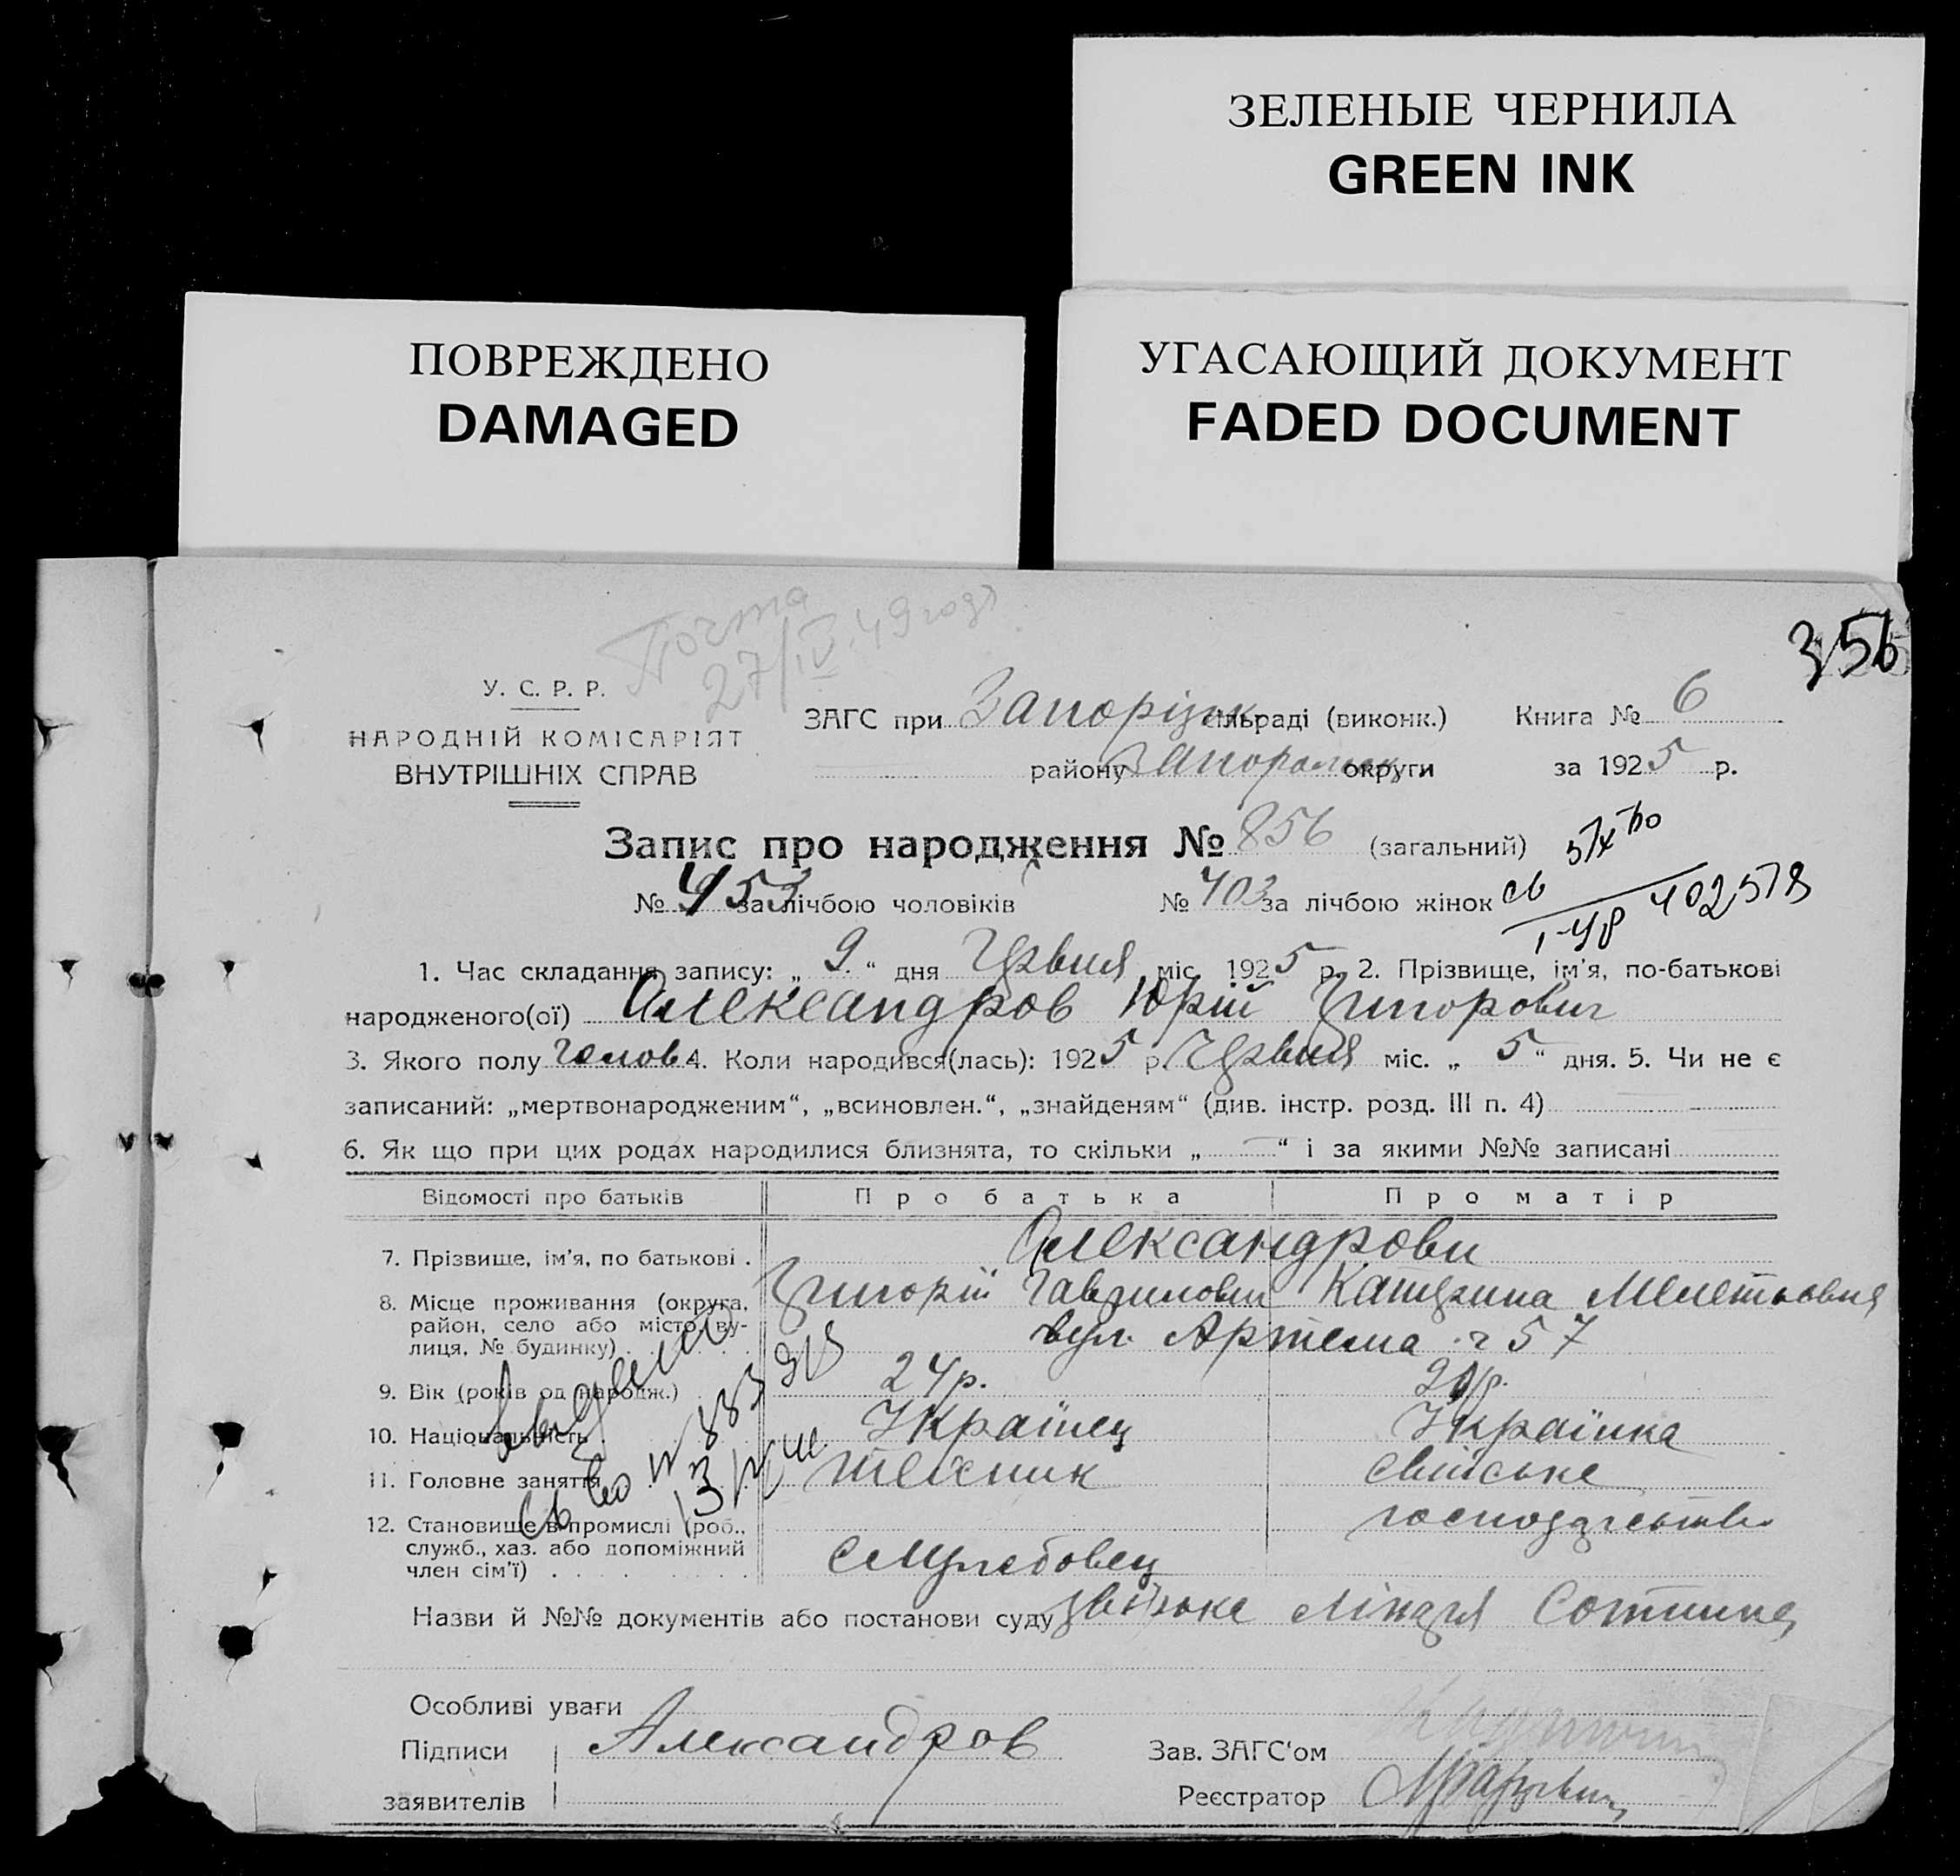 ЗЕЛЕНЫЕ ЧЕРНИЛА
GREEN INK
ПОВРЕЖДЕНО
DAMAGED
УГАСАЮЩИЙ ДОКУМЕНТ
FADED DOCUMENT
356
Почта
27/IV.49 года
У. С. Р. Р.
НАРОДНІЙ КОМІСАРІЯТ
ВНУТРІШНІХ СПРАВ
ЗАГС при Запорізьк. сільраді (виконк.) Книга № 6
району Запорізьк. округи за 1925 р.
Запис про народження № 856 (загальний)
№ 453 за лічбою чоловіків № 403 за лічбою жінок
св 402578
1. Час складання запису: „ 9. “ дня Червня міс. 1925 р. 2. Прізвище, ім'я, по-батькові
народженого(ої) Олександров Юрій Григорович
3. Якого полу чолов 4. Коли народився(лась): 1925 р. Червня міс. „ 5 “ дня. 5. Чи не є
записаний: „мертвонародженим“, „всиновлен.“, „знайденям“ (див. інстр. розд. III п. 4)
6. Як що при цих родах народилися близнята, то скільки „ — “ і за якими №№ записані
Відомості про батьків Про батька Про матір
7. Прізвище, ім'я, по батькові . Олександрови
Григорій Гаврилович Катерина Мелетьовна
8. Місце проживання (округа, район, село або місто, вулиця, № будинку) вул. Артема ч 57
9. Вік (років од народж.) 24 р.
10. Національність Українец Українка
11. Головне заняття техник свійське
господарство
12. Становище в промислі (роб., служб., хаз. або допоміжний член сім'ї) службовец
Назви й №№ документів або постанови суду лікаря
Особливі уваги
Підписи Александров Зав. ЗАГС'ом
заявителів Реєстратор